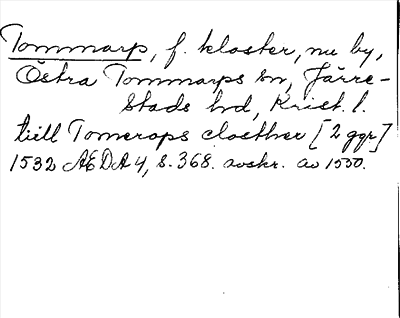 Tommarp, f. kloster, nu by,
Östra Tommarps sn, Järre-
stads hd, Krist. l.
till Tomerops closther [2 ggr]
1532 ÆDA 4, s. 368. avskr. av 1550.